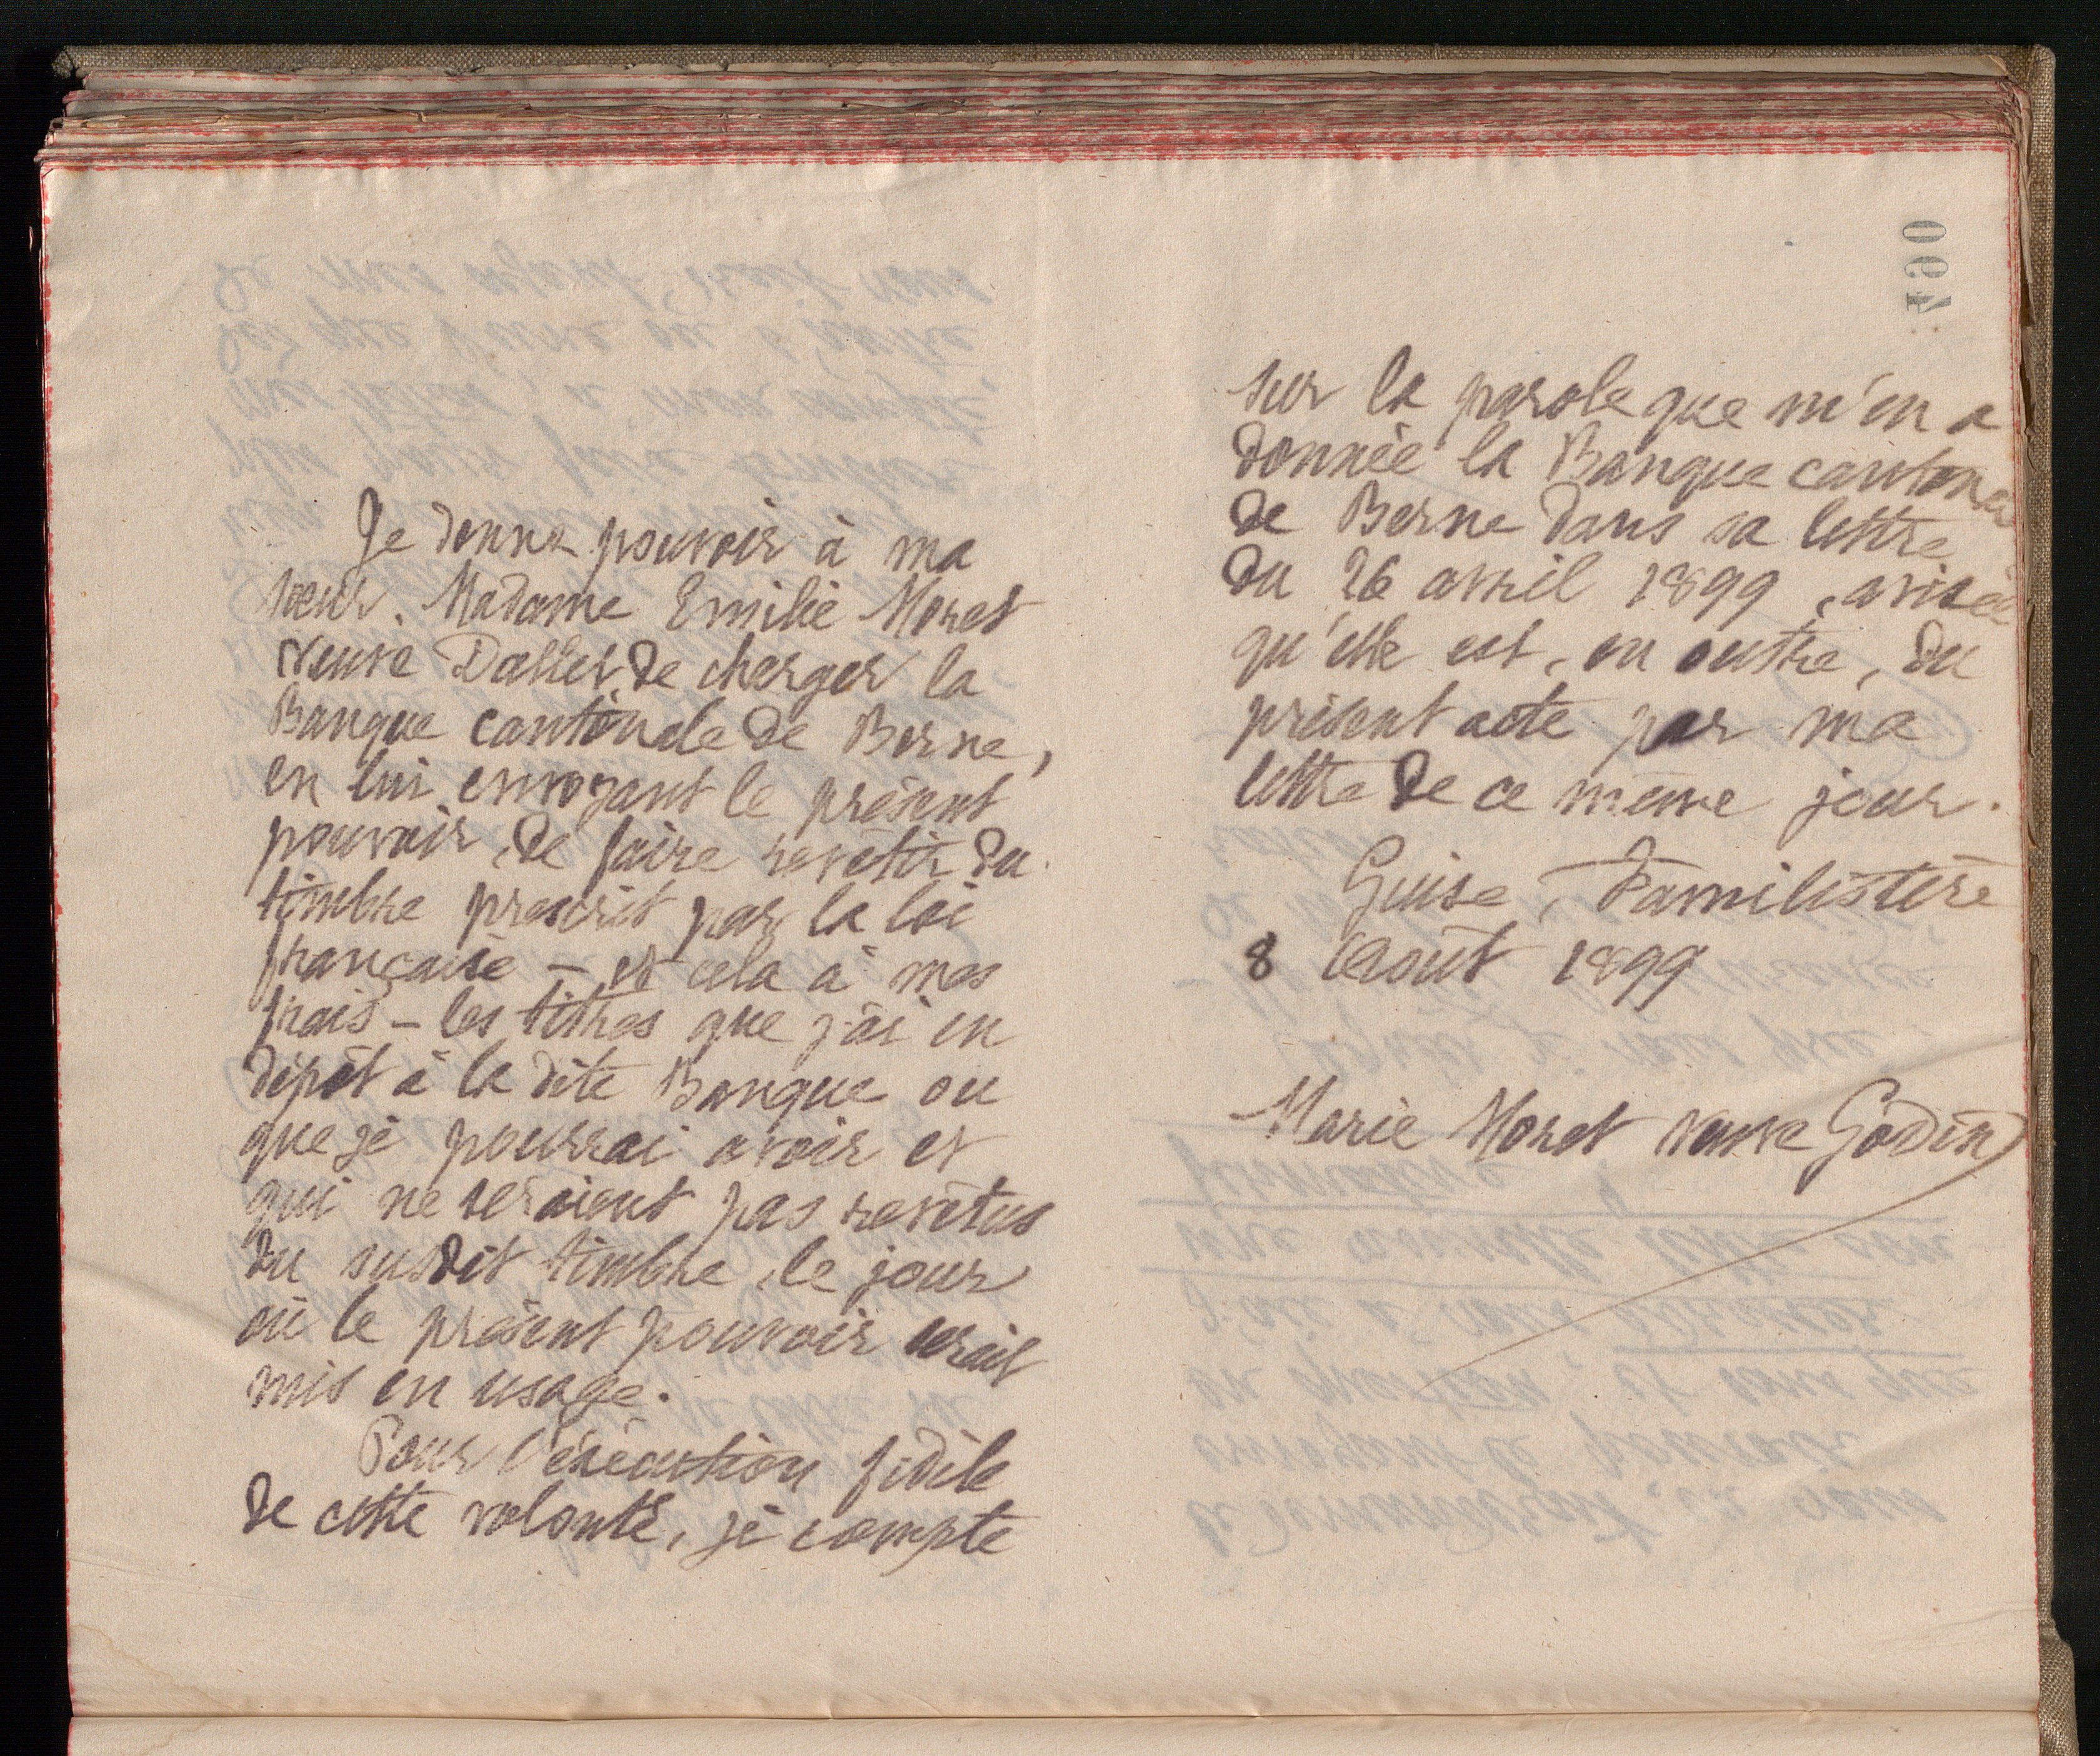 Je donne pouvoir à ma
sœur. Madame Emilie Moret
veuve Dallet, de charger la
Banque cantonale de Berne,
en lui envoyant le présent
pouvoir, de faire revêtir du
timbre prescrit par la loi
française – et cela à mes
frais – les titres que j'ai en
dépôt à la dite Banque ou
que je pourrai avoir et
qui ne seraient pas revêtus
du susdit timbre, le jour
où le présent pouvoir serait
mis en usage.
Pour l'exécution fidèle
de cette volonté, je compte
064
sur la parole que m'en a
donnée la Banque cantonale
de Berne dans sa lettre
du 26 avril 1899, avisée
qu'elle est, en outre, du
présent acte par ma
lettre de ce même jour.
Guise, Familistère
8 Août 1899
Marie Moret veuve Godin